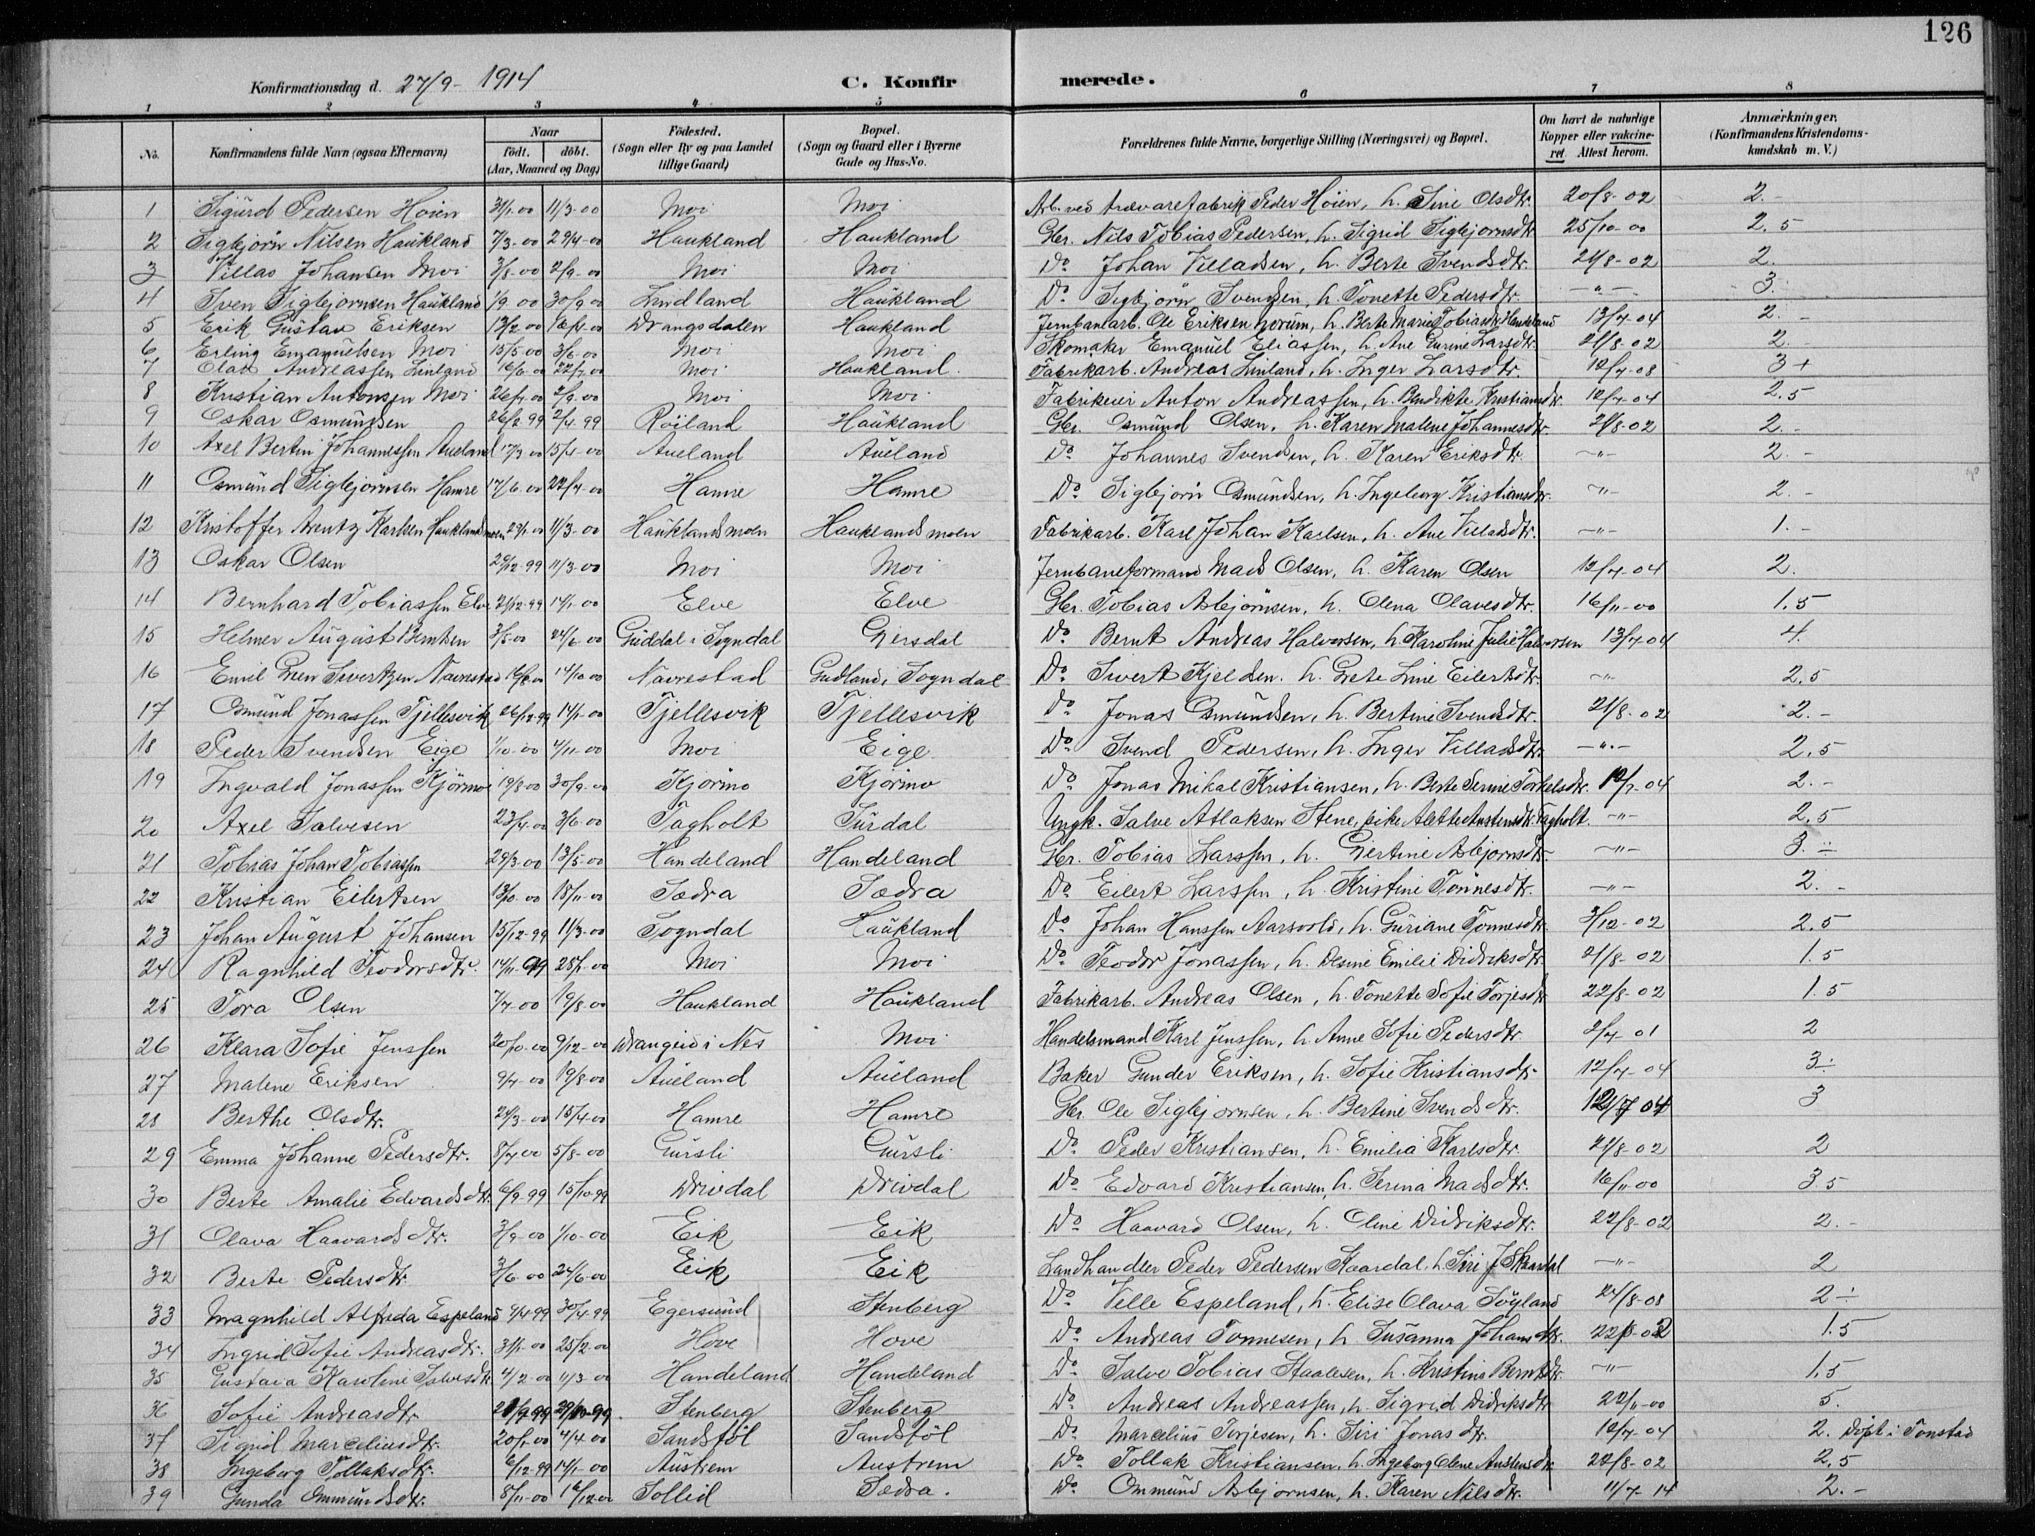 126
Konfirmationsdag d. 27/9 - 1914 C. Konfirmerede.
1 2 3 4 5 6 7 8
No. Konfirmandens fulde Navn (ogsaa Efternavn) Naar født. døbt. (Aar, Maaned og Dag) Fødested. (Sogn eller By og paa Landet tillige Gaard) Bopæl. (Sogn og Gaard eller i Byerne Gade og Hus-No. Forældrenes fulde Navne, borgerlige Stilling (Næringsvei) og Bopæl. Om havt de naturlige Kopper eller vaccineret. Attest herom. Anmærkninger. (Konfirmandens Kristendomskundskab m. V.)
1 Sigurd Pedersen Høien 31/1-00 11/3-00 Moi Moi Arb. ved trævarefabrik Peder Høien, h. Sine Olsdtr. 20/8-02 2.-
2 Sigbjørn Nilsen Haukland 7/3-00 29/4-00 Haukland Haukland Gbr. Nils Tobias Pedersen, h. Sigrid Sigbjørnsdtr. 25/10-00 2,5
3 Villas Johansen Moi 3/8-00 2/9-00 Moi Moi Do Johan Villadsen, h. Berte Svendsdtr. 21/8-02 2.
4 Sven Sigbjørnsen Haukland 1/9 00 30/9 00 Lindland Haukland Do Sigbjørn Svendsen, h. Tonette Pedersdtr. -"- 3.
5 Erik Gustav Eriksen 13/2 00 Drangsdalen Haukland Jernbanearb. Ole Eriksen Norum, h. Berte Marie Tobiasdtr. Haukland 13/7-04 2.-
6 Erling Emanuelsen Moi 15/5 00 3/6-00 Moi Moi Skomaker Emanuel Eliassen, h. Ane Gurine Larsdtr. 21/8-02 2.-
7 Olav Andreassen Linland 22/7-00 Moi Haukland. Fabrikarb. Andreas Linland, h. Inger Larsdtr. 12/7-08 3+
8 Kristian Antonsen Moi 26/7-00 2/9-00 Moi Moi Fabrikeier Anton Andreassen, h. Bendikte Kristiansdtr. 12/7-04 2,5
9 Oskar Osmundsen 26/2 99 2/4-99 Røiland Haukland Gbr. Osmund Olsen, h. Karen Malene Johannesdtr. 21/8-02 2.-
10 Axel Bertin Johannessen Aueland 17/3 00 15/4-00 Aueland Aueland Do Johannes Svendsen, h. Karen Eriksdtr. -"- 2.-
11 Osmund Sigbjørnsen Hamre 17/6-00 22/7-00 Hamre Hamre Do Sigbjørn Osmundsen, h. Ingeborg Kristiansdtr. -"- 2.-
12 Kristoffer Arentz Karlsen Hauklandsmoen 23/1-00 11/3-00 Hauklandsmoen Hauklandsmoen Fabrikarb. Karl Johan Karlsen, h. Ane Villadsdtr. -"- 1.-
13 Oskar Olsen 29/12-99 11/3-00 Moi Moi Jernbaneformand Mads Olsen, h. Karen Olsen 12/7-04 2.
14 Bernhard Tobiassen Elve 21/12-99 14/1-00 Elve Elve Gbr. Tobias Asbjørnsen, h. Olena Olavesdtr. 16/11-00 1,5
15 Helmer August Berntsen 3/5-00 24/6-00 Guddal i Sogndal Gjersdal Do Bernt Andreas Halvorsen, h. Karoline Julie Halvorsen 13/7-04 4.
16 Emil Sivertsen Navrestad 14/10 00 Navrestad Gudland i Sogndal Do Sivert Kjelden. h. Grete Line Eilertsdtr. -"- 2,5
17 Osmund Jonassen Tjellesvik 26/12-99 14/1-00 Tjellesvik Tjellesvik Do Jonas Osmundsen, h. Bertine Svendsdtr. 21/8-02 2.-
18 Peder Svendsen Eige 1/10-00 4/11-00 Moi Eige Do Svend Pedersen, h. Inger Villadsdtr. -"- 2,5
19 Ingvald Jonassen Kjørmo 19/8-00 30/9-00 Kjørmo Kjørmo Do Jonas Mikal Kristiansen, h. Berte Serine Torkelsdtr. 12/7-04 2.-
20 Axel Salvesen 23/4-00 3/6-00 Tagholt Surdal Ungk. Salve Atlaksen Stene, pike Alette Austensdtr. Tagholt. -"- 2,5
21 Tobias Johan Tobiassen 29/3-00 13/5-00 Handeland Handeland Gbr. Tobias Larssen, h. Gjertine Asbjørnsdtr. -"- 3.÷
22 Kristian Eilertsen 13/10-00 18/11-00 Sædra Sædra Do Eilert Larssen, h. Kristine Tønnesdtr. -"- 2.-
23 Johan August Johansen 15/12-99 11/3-00 Sogndal Haukland Do Johan Hanssen Aarsvold, h. Guriane Tønnesdtr. 3/12-02 2,5
24 Ragnhild Teodorsdtr. 14/11-99 28/1-00 Moi Moi Do Teodor Jonassen, h. Desine Emilie Didriksdtr. 21/8-02 1.5
25 Tora Olsen 7/7-00 19/8-00 Haukland Haukland Fabrikarb. Andreas Olsen, h. Tonette Sofie Torjesdtr. 22/8-02 1.5
26 Klara Sofie Jenssen 20/10-00 9/12-00 Drangeid i Nes Moi Handelsmand Karl Jenssen, h. Anne Sofie Pedersdtr. 2/7 01 2
27 Malene Eriksen 9/7-00 19/8-00 Aueland Aueland Baker Gunder Eriksen, h. Sofie Kristiansdtr. 12/7-04 3÷
28 Berthe Olsdtr. 21/3-00 15/4-00 Hamre Hamre Gbr. Ole Sigbjørnsen, h. Bertine Svendsdtr. 3
29 Emma Johanne Pedersdtr. 8/7 00 5/8-00 Gursli Gursli Do Peder Kristiansen, h. Emilia Karlsdtr. 21/8-02 2
30 Berte Amalie Edvardsdtr. 6/9-99 15/10-99 Drivdal Drivdal Do Edvard Kristiansen, h. Serina Madsdtr. 16/11 00 3.5
31 Olava Haavardsdtr. 3/9-00 1/10-00 Eik Eik Do Haavard Olsen, h. Oline Didriksdtr. 22/8-02 2.-
32 Berte Pedersdtr. 3/6-00 24/6-00 Eik Eik Landhandler Peder Pedersen Skaardal. h. Siri J Skaardal -"- 2
33 Magnhild Alfreda Espeland 4/4 99 30/4-99 Egersund Stenberg Do Velle Espeland, h. Elise Olava Søyland 24/8-08 2÷
34 Ingrid Sofie Andreasdtr. 31/1-00 25/2-00 Hove Hove Do Andreas Tønnesen, h. Susanna Johansdtr. 22/8-02 1.5
35 Gustava Karoline Salvesdtr. 4/2-00 11/3-00 Handeland Handeland Do Salve Tobias Staalesen, h. Kristina Berntsdtr. -"- 1,5
36 Sofie Andreasdtr. Stenberg Stenberg Do Andreas Andreassen, h. Sigrid Didriksdtr. 22/11-00 5.
37 Sigrid Marceliusdtr. 20/1-00 4/4 00 Sandstøl Sandstøl Do Marcelius Torjesen, h. Siri Jonasdtr. 12/7-04 2. Døpt i Tonstad
38 Ingeborg Tollaksdtr. 6/12-99 14/1-00 Austrem Austrem Do Tollak Kristiansen, h. Ingeborg Olene Austensdtr. 22/8-02 2,5
39 Gunda Ommundsdtr. 8/11-00 16/12 00 Sollid Sædra. Do Ommund Asbjørnsen, h. Karen Nilsdtr. 11/7-14 2.-